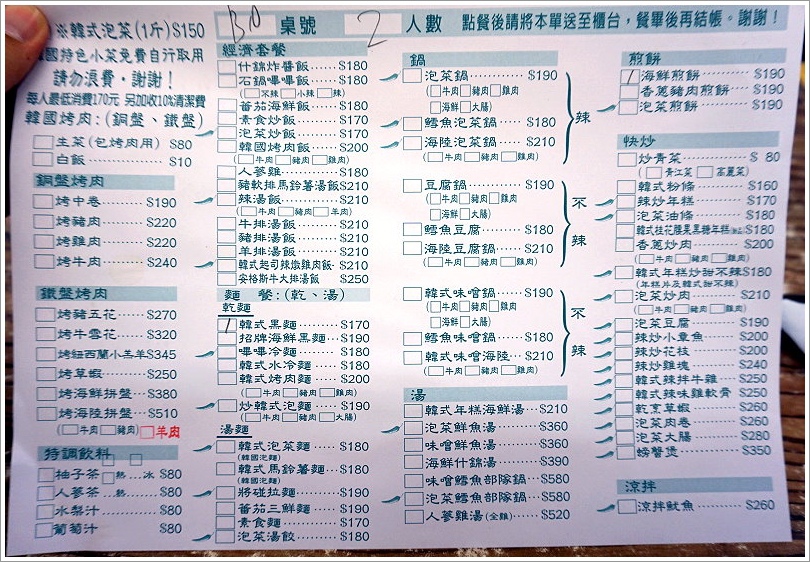 ※韓式泡菜(1斤)$150
韓國特色小菜免費自行取用
請勿浪費，謝謝！
每人最低消費170元 另加收10%清潔費
韓國烤肉：(銅盤、鐵盤)
生菜(包烤肉用) $80
白飯 $10
銅盤烤肉
烤中卷 $190
烤豬肉 $220
烤雞肉 $220
烤牛肉 $240
鐵盤烤肉
烤豬五花 $270
烤牛雪花 $320
烤紐西蘭小羔羊$345
烤草蝦 $250
烤海鮮拼盤 $380
烤海陸拼盤 $510
(牛肉 豬肉 羊肉
特調飲料
柚子茶 熱...冰 $80
人蔘茶...熱 $80
水梨汁 $80
葡萄汁 $80
桌號 2 人數 點餐後請將本單送至櫃台，餐畢後再結帳。謝謝！
經濟套餐
什錦炸醬飯 $180
石鍋嗶嗶飯 $180
(不辣 小辣 辣)
番茄海鮮飯 $180
素食炒飯 $170
泡菜炒飯 $170
韓國烤肉飯 $200
(牛肉 豬肉 雞肉)
人蔘雞 $180
豬軟排馬鈴薯湯飯$210
辣湯飯 $210
(牛肉 豬肉 羊肉)
牛排湯飯 $210
豬排湯飯 $210
羊排湯飯 $210
韓式起司辣燉雞肉飯 $210
安格斯牛大排湯飯 $250
麵 餐：(乾、湯)
乾麵
韓式黑麵 $170
招牌海鮮黑麵 $190
嗶嗶冷麵 $180
韓式水冷麵 $180
韓式烤肉麵 $200
(牛肉 豬肉 雞肉)
炒韓式泡麵 $190
(牛肉 豬肉 雞肉)
湯麵
韓式泡菜麵 $180
(韓國泡麵)
韓式馬鈴薯麵 $180
(韓國泡麵)
將碰拉麵 $190
番茄三鮮麵 $190
素食麵 $170
泡菜湯餃 $180
鍋
泡菜鍋 $190
(牛肉 豬肉 雞肉
海鮮 大腸)
鱈魚泡菜鍋 $180
海陸泡菜鍋 $210
(牛肉 豬肉 雞肉)
辣
豆腐鍋 $190
(牛肉 豬肉 雞肉
海鮮 大腸)
鱈魚豆腐 $180
海陸豆腐鍋 $210
(牛肉 豬肉 雞肉)
不辣
韓式味噌鍋 $190
(牛肉 豬肉 雞肉
海鮮 大腸)
鱈魚味噌鍋 $180
韓式味噌海陸 $210
(牛肉 豬肉 雞肉)
不辣
湯
韓式年糕海鮮湯 $210
泡菜鮮魚湯 $360
味噌鮮魚湯 $360
海鮮什錦湯 $390
味噌鱈魚部隊鍋 $580
泡菜鱈魚部隊鍋 $580
人蔘雞湯(全雞) $520
煎餅
海鮮煎餅 $190
香蔥豬肉煎餅 $190
泡菜煎餅 $190
快炒
炒青菜 $ 80
(青江菜 高麗菜)
韓式粉條 $160
辣炒年糕 $170
泡菜油條 $180
韓式桂花腰果黑糖年糕 $180
香蔥炒肉 $200
(牛肉 豬肉 雞肉)
韓式年糕炒甜不辣$180
(年糕片及韓式甜不辣)
泡菜炒肉 $210
(牛肉 豬肉 雞肉)
泡菜豆腐 $190
辣炒小章魚 $200
辣炒花枝 $200
辣炒雞塊 $240
韓式辣拌牛雜 $250
韓式辣味雞軟骨 $250
乾烹草蝦 $260
泡菜肉卷 $260
泡菜大腸 $280
螃蟹煲 $350
涼拌
涼拌魷魚 $260